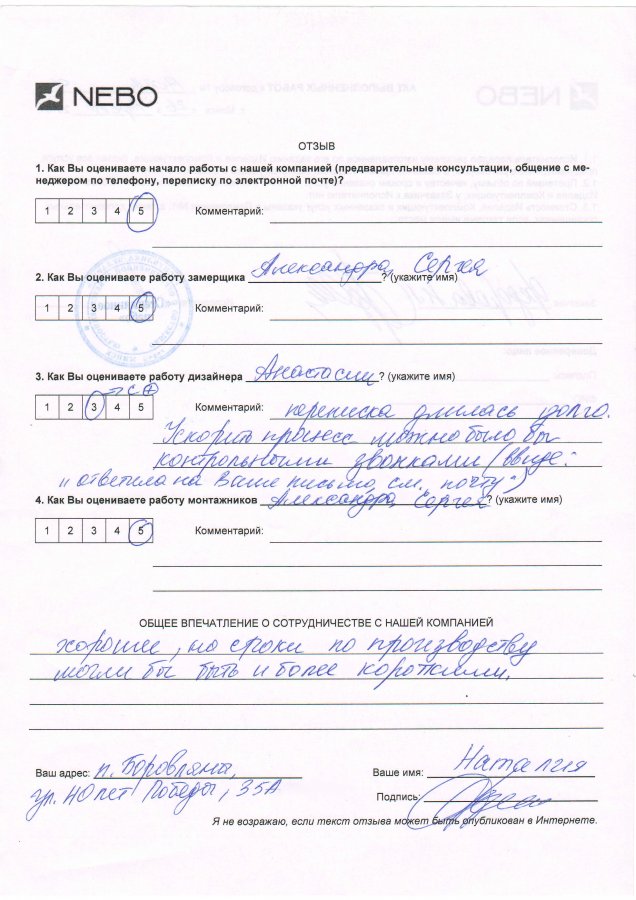 NEBO
ОТЗЫВ
1. Как Вы оцениваете начало работы с нашей компанией (предварительные консультации, общение с ме-
неджером по телефону, переписку по электронной почте)?
1 2 3 4 5 Комментарий:
2. Как Вы оцениваете работу замерщика Александра, Сергея ? (укажите имя)
1 2 3 4 5 Комментарий:
3. Как Вы оцениваете работу дизайнера Анастасии ? (укажите имя)
1 2 3 4 5 Комментарий: переписка длилась долго.
Ускорить процесс можно было бы
контрольными звонками (ввиде:
"ответила на Ваше письмо, см. почту")
4. Как Вы оцениваете работу монтажников Александра, Сергея ? (укажите имя)
1 2 3 4 5 Комментарий:
ОБЩЕЕ ВПЕЧАТЛЕНИЕ О СОТРУДНИЧЕСТВЕ С НАШЕЙ КОМПАНИЕЙ
хорошее, но сроки по производству
могли бы быть и более короткими.
Ваш адрес: п. Боровляны,
ул. 40 лет Победы, 35А
Ваше имя: Наталия
Подпись:
Я не возражаю, если текст отзыва может быть опубликован в Интернете.